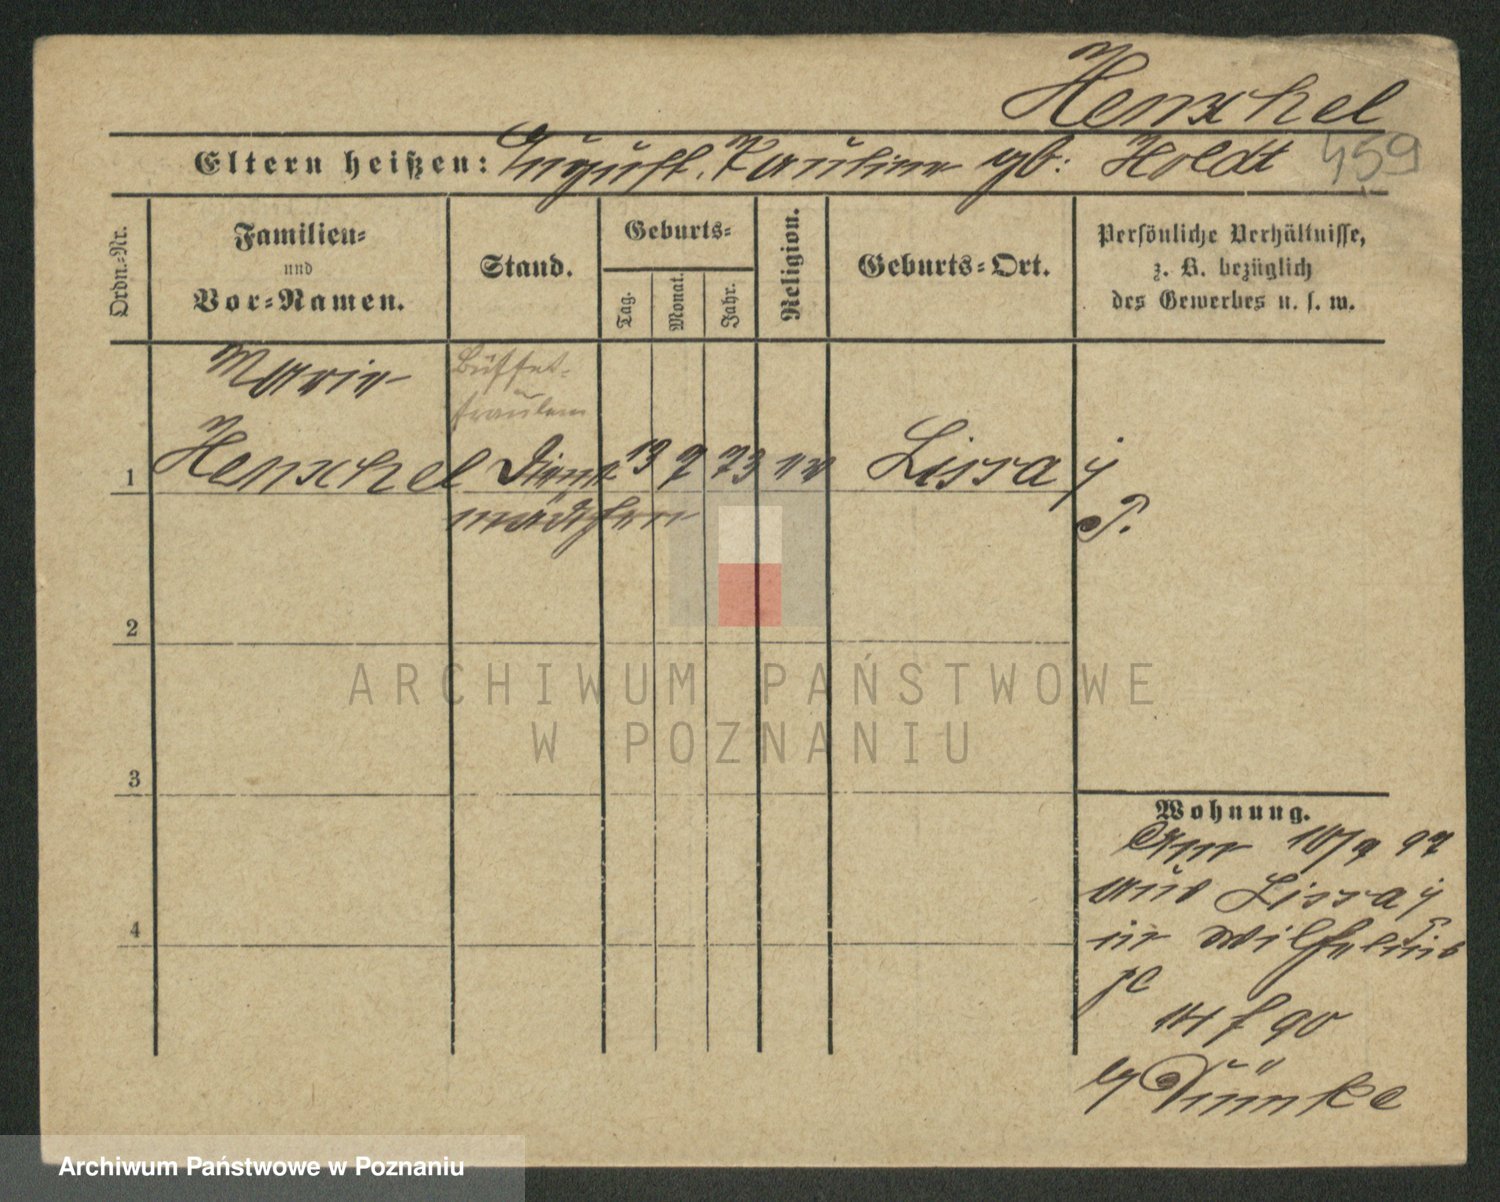 Henschel
Eltern heißen: August, Pauline gb: Holdt 459
Ordn.-Nr.
Familien-
und
Vor-Namen.
Stand.
Geburts-
Tag.
Monat.
Jahr.
Religion.
Geburts-Ort.
Persönliche Verhältnisse,
z. B. bezüglich
des Gewerbes u. s. w.
Marie
Büffet-
fräulein
1 Henschel Dienst 13 9 73 ev Lissa i/
mädchen P.
2
ARCHIWUM PAŃSTWOWE
W POZNANIU
3
Wohnung.
10/9 97
aus Lissa i/
4
in
14 90
Archiwum Państwowe w Poznaniu